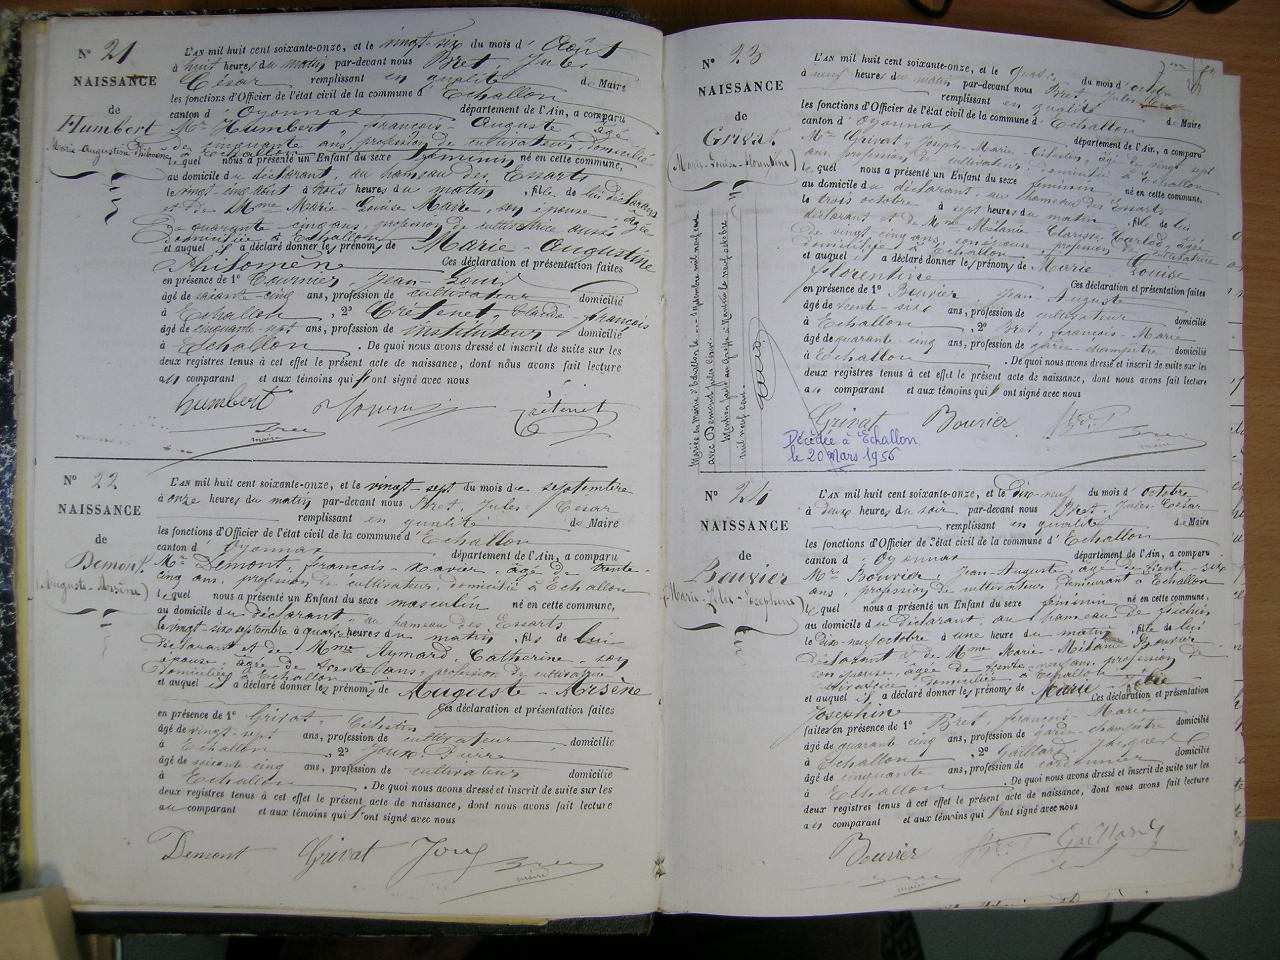 N° 21
NAISSANCE
de
Humbert
Marie Augustine Philomène
L'AN mil huit cent soixante-onze, et le vingt-six du mois d'Août
à huit heures du matin par-devant nous Bret, Jules
César remplissant en qualité de Maire
les fonctions d'Officier de l'état civil de la commune d'Echallon
canton d'Oyonnax département de l'Ain, a comparu
Mr Humbert, françois-Auguste âgé
de cinquante ans, profession de cultivateur, domicilié
lequel nous a présenté un Enfant du sexe féminin né en cette commune,
au domicile du déclarant, au hameau des Essarts
le vingt-cinq août à trois heures du matin, fille de lui déclarant
et de Mme Marie Louise Marie, son épouse, âgée
de quarante cinq ans, profession de cultivatrice aussi
domiciliée à Echallon
et auquel il a déclaré donner les prénoms de Marie-Augustine
Philomène Ces déclaration et présentation faites
en présence de 1° Tournier Jean-Louis
âgé de soixante-cinq ans, profession de cultivateur domicilié
à Echallon, 2° Trétenet, Claude-françois
âgé de cinquante-sept ans, profession de instituteur domicilié
à Echallon. De quoi nous avons dressé et inscrit de suite sur les
deux registres tenus à cet effet le présent acte de naissance, dont nous avons fait lecture
au comparant et aux témoins qui ont signé avec nous
humbert Tournier Trétenet
Bret
maire
N° 22
NAISSANCE
de
Demont
(Auguste-Arsène)
L'AN mil huit cent soixante-onze, et le vingt-sept du mois de septembre
à onze heures du matin par-devant nous Bret, Jules César
remplissant en qualité de Maire
les fonctions d'Officier de l'état civil de la commune d'Echallon
canton d'Oyonnax département de l'Ain, a comparu
Mr Demont, françois-Xavier, âgé de trente-
cinq ans, profession de cultivateur domicilié à Echallon
lequel nous a présenté un Enfant du sexe masculin né en cette commune,
au domicile du déclarant, au hameau des Essarts
le vingt-six septembre à quatre heures du matin, fils de lui
déclarant et de Mme Aymard, Catherine, son
épouse, âgée de trente ans, profession de cultivatrice
domiciliée à Echallon
et auquel il a déclaré donner les prénoms de Auguste-Arsène
Ces déclaration et présentation faites
en présence de 1° Grivat, Célestin
âgé de vingt-sept ans, profession de cultivateur domicilié
à Echallon, 2° Joux
âgé de soixante cinq ans, profession de cultivateur domicilié
à Echallon. De quoi nous avons dressé et inscrit de suite sur les
deux registres tenus à cet effet le présent acte de naissance, dont nous avons fait lecture
au comparant et aux témoins qui ont signé avec nous
Demont Grivat Joux
Bret
maire
N° 23
NAISSANCE
de
Grivat
(Marie-Louise-Florentine)
L'AN mil huit cent soixante-onze, et le quatre du mois d'octobre
à neuf heures du matin par-devant nous Bret Jules César
remplissant en qualité de Maire
les fonctions d'Officier de l'état civil de la commune d'Echallon
canton d'Oyonnax département de l'Ain, a comparu
Mr Grivat, Joseph-Marie Célestin, âgé de vingt sept
ans, profession de cultivateur, domicilié à Echallon
lequel nous a présenté un Enfant du sexe féminin né en cette commune.
au domicile du déclarant au hameau des Essarts
le trois octobre à sept heures du matin, fille de lui
déclarant et de Mme Mélanie Clarisse Carlod, âgée
de vingt cinq ans, son épouse, profession de cultivatrice
domiciliée à Echallon
et auquel il a déclaré donner les prénoms de Marie Louise
florentine Ces déclaration et présentation faites
en présence de 1° Bouvier, Jean Auguste
âgé de trente six ans, profession de cultivateur domicilié
à Echallon, 2° Bret, françois Marie
âgé de quarante cinq ans, profession de garde champêtre domicilié
à Echallon. De quoi nous avons dressé et inscrit de suite sur les
deux registres tenus à cet effet le présent acte de naissance, dont nous avons fait lecture
au comparant et aux témoins qui ont signé avec nous
Grivat Bouvier Bret
Décédée à Echallon
le 20 Mars 1956
N° 24
NAISSANCE
de
Bouvier
(Marie-Julie-Josephine)
L'AN mil huit cent soixante-onze, et le dix-neuf du mois d'octobre
à deux heures du soir par-devant nous Bret, Jules César
remplissant en qualité de Maire
les fonctions d'Officier de l'état civil de la commune d'Echallon
canton d'Oyonnax département de l'Ain, a comparu
Mr Bouvier, Jean-Auguste, âgé de trente-six
ans, profession de cultivateur demeurant à Echallon
lequel nous a présenté un Enfant du sexe féminin né en cette commune,
au domicile du déclarant au hameau de
le dix-neuf octobre à une heure du matin, fille de lui
déclarant et de Mme Marie-Mélanie
son épouse, âgée de trente-neuf ans, profession de
cultivatrice, domiciliée à Echallon
et auquel il a déclaré donner les prénoms de Marie-Julie
Josephine Ces déclaration et présentation
faites en présence de 1° Bret, françois-Marie
âgé de quarante cinq ans, profession de garde-champêtre domicilié
à Echallon, 2° Gaillard, Jacques
âgé de cinquante ans, profession de cordonnier domicilié
à Echallon. De quoi nous avons dressé et inscrit de suite sur les
deux registres tenus à cet effet le présent acte de naissance, dont nous avons fait lecture
au comparant et aux témoins qui ont signé avec nous
Bouvier Bret Gaillard
maire